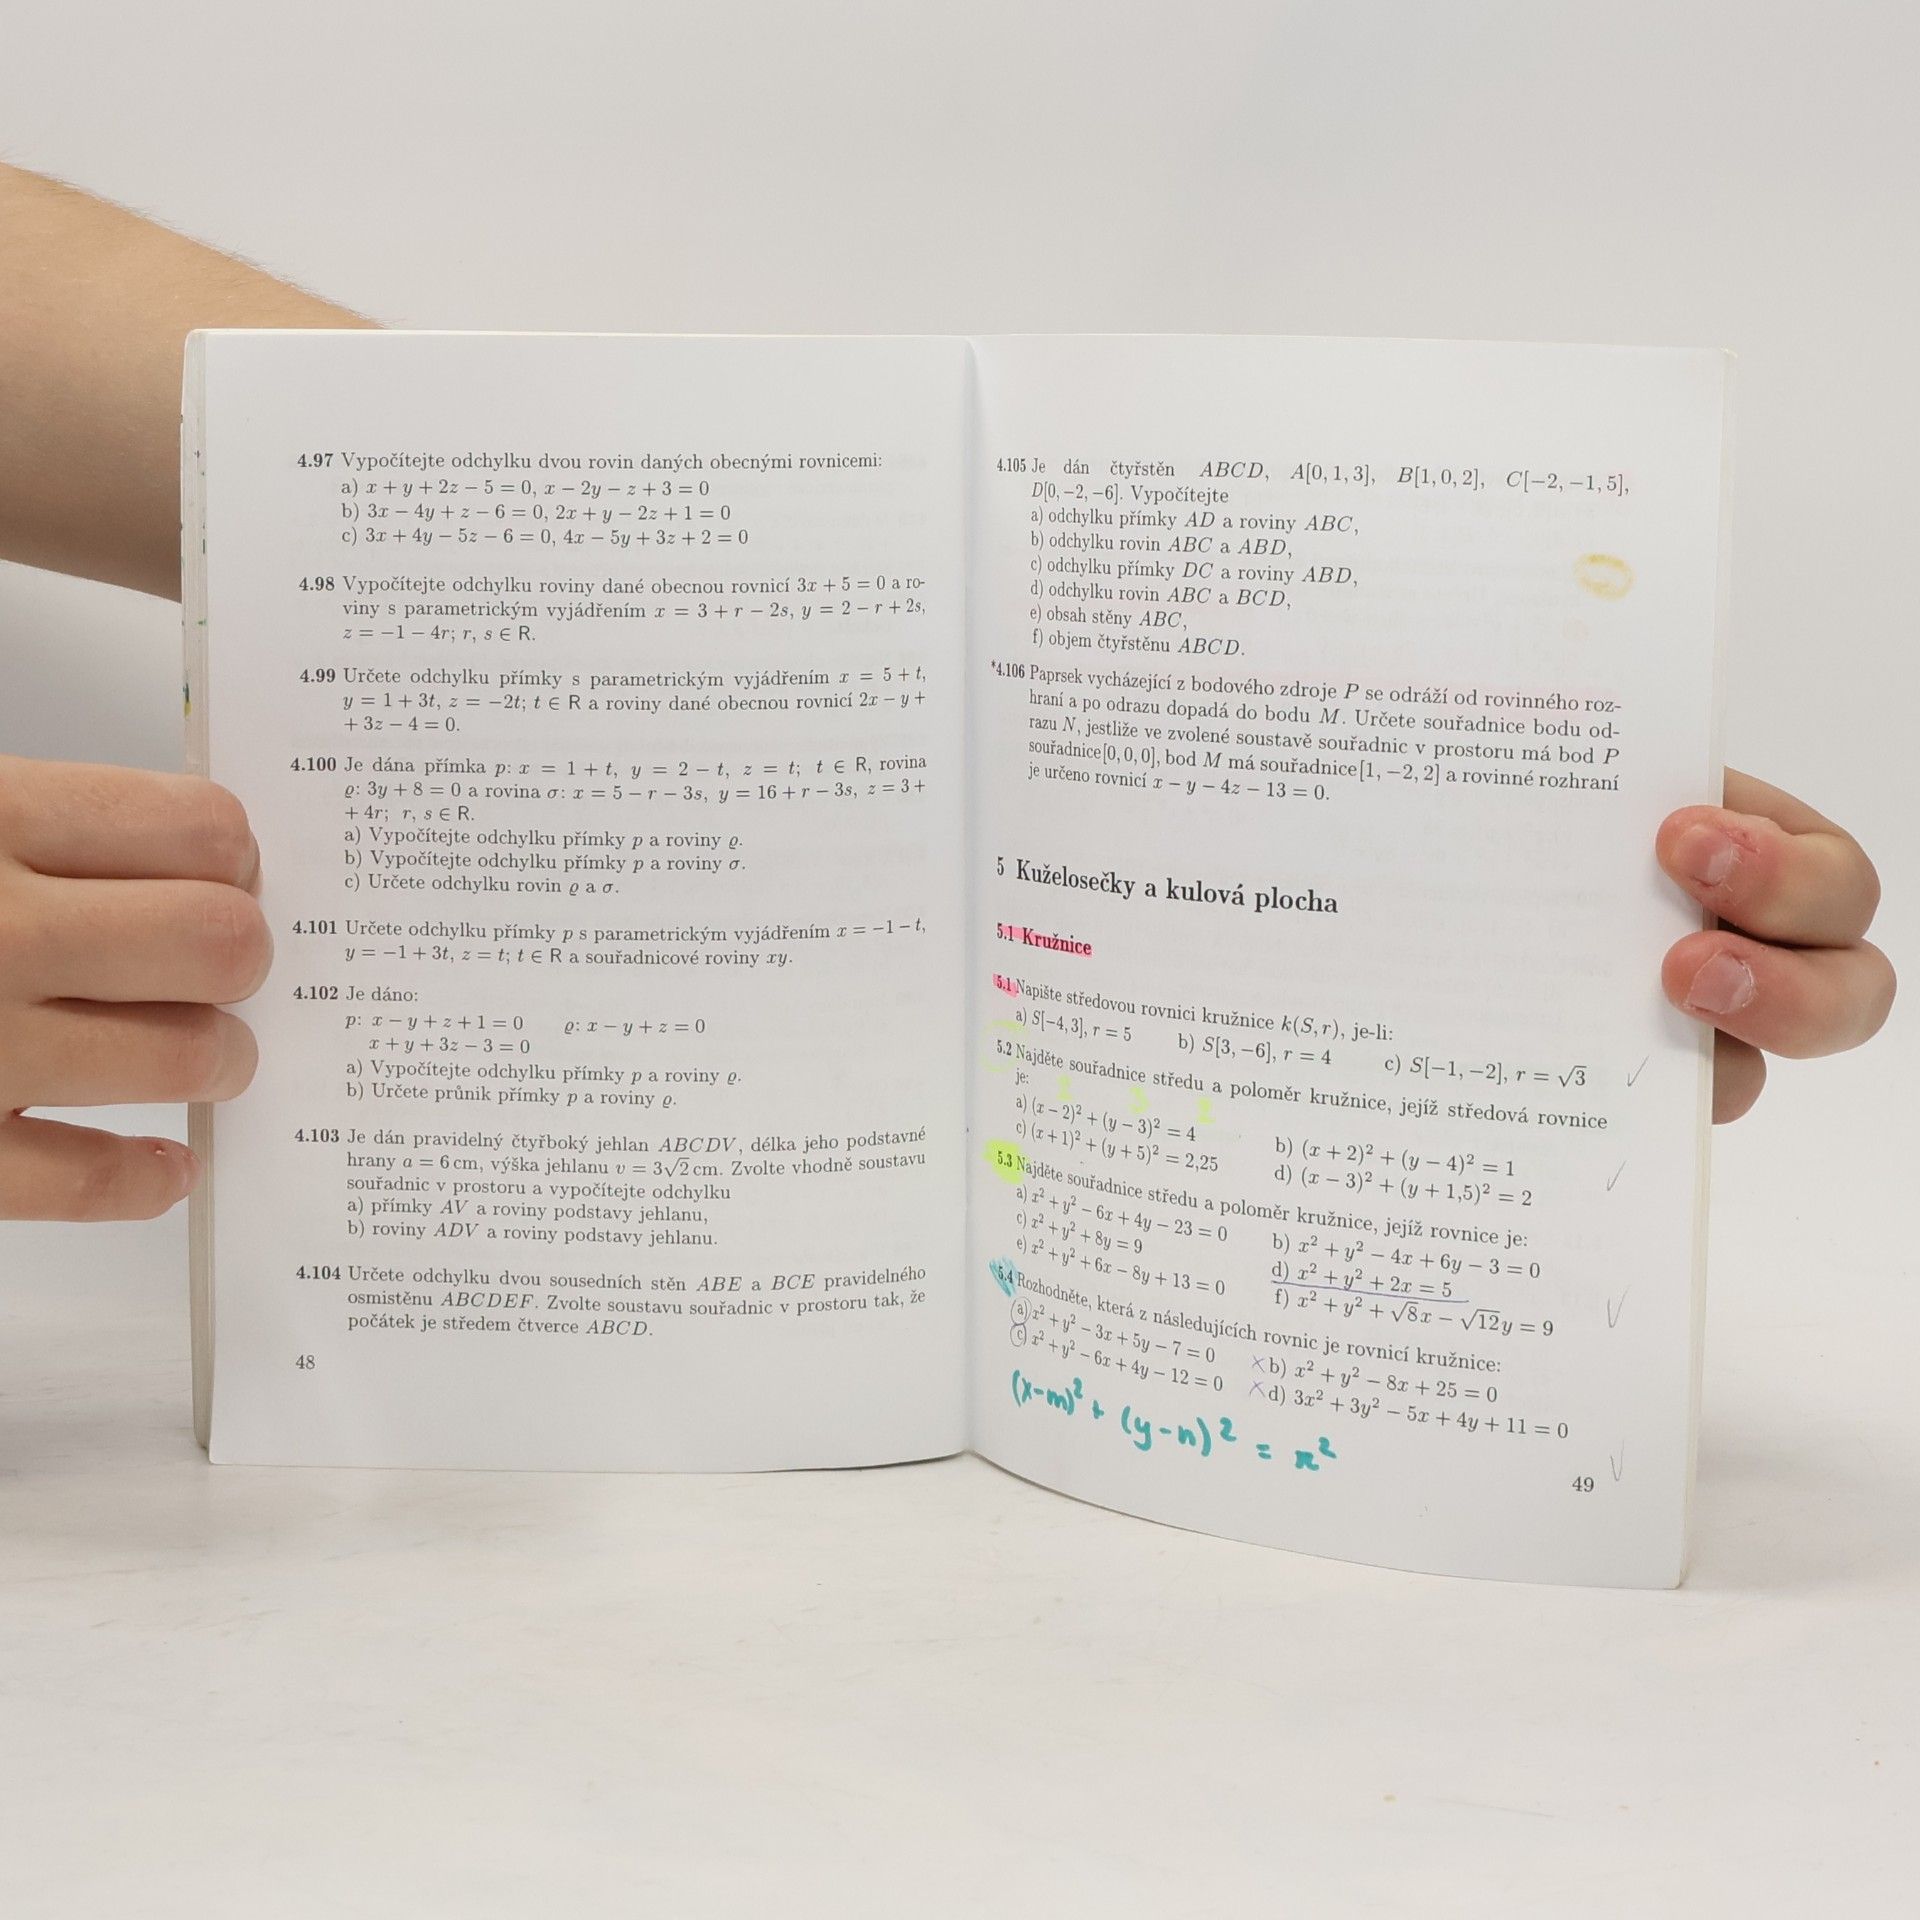 4.97 Vypočítejte odchylku dvou rovin daných obecnými rovnicemi:
a) x + y + 2z − 5 = 0, x − 2y − z + 3 = 0
b) 3x − 4y + z − 6 = 0, 2x + y − 2z + 1 = 0
c) 3x + 4y − 5z − 6 = 0, 4x − 5y + 3z + 2 = 0
4.98 Vypočítejte odchylku roviny dané obecnou rovnicí 3x + 5 = 0 a ro-
viny s parametrickým vyjádřením x = 3 + r − 2s, y = 2 − r + 2s,
z = −1 − 4r; r, s ∈ R.
4.99 Určete odchylku přímky s parametrickým vyjádřením x = 5 + t,
y = 1 + 3t, z = −2t; t ∈ R a roviny dané obecnou rovnicí 2x − y +
+ 3z − 4 = 0.
4.100 Je dána přímka p: x = 1 + t, y = 2 − t, z = t; t ∈ R, rovina
ϱ: 3y + 8 = 0 a rovina σ: x = 5 − r − 3s, y = 16 + r − 3s, z = 3 +
+ 4r; r, s ∈ R.
a) Vypočítejte odchylku přímky p a roviny ϱ.
b) Vypočítejte odchylku přímky p a roviny σ.
c) Určete odchylku rovin ϱ a σ.
4.101 Určete odchylku přímky p s parametrickým vyjádřením x = −1 − t,
y = −1 + 3t, z = t; t ∈ R a souřadnicové roviny xy.
4.102 Je dáno:
p: x − y + z + 1 = 0 ϱ: x − y + z = 0
x + y + 3z − 3 = 0
a) Vypočítejte odchylku přímky p a roviny ϱ.
b) Určete průnik přímky p a roviny ϱ.
4.103 Je dán pravidelný čtyřboký jehlan ABCDV, délka jeho podstavné
hrany a = 6 cm, výška jehlanu v = 3√2 cm. Zvolte vhodně soustavu
souřadnic v prostoru a vypočítejte odchylku
a) přímky AV a roviny podstavy jehlanu,
b) roviny ADV a roviny podstavy jehlanu.
4.104 Určete odchylku dvou sousedních stěn ABE a BCE pravidelného
osmistěnu ABCDEF. Zvolte soustavu souřadnic v prostoru tak, že
počátek je středem čtverce ABCD.
48
4.105 Je dán čtyřstěn ABCD, A[0, 1, 3], B[1, 0, 2], C[−2, −1, 5],
D[0, −2, −6]. Vypočítejte
a) odchylku přímky AD a roviny ABC,
b) odchylku rovin ABC a ABD,
c) odchylku přímky DC a roviny ABD,
d) odchylku rovin ABC a BCD,
e) obsah stěny ABC,
f) objem čtyřstěnu ABCD.
*4.106 Paprsek vycházející z bodového zdroje P se odráží od rovinného roz-
hraní a po odrazu dopadá do bodu M. Určete souřadnice bodu od-
razu N, jestliže ve zvolené soustavě souřadnic v prostoru má bod P
souřadnice [0, 0, 0], bod M má souřadnice [1, −2, 2] a rovinné rozhraní
je určeno rovnicí x − y − 4z − 13 = 0.
5 Kuželosečky a kulová plocha
5.1 Kružnice
5.1 Napište středovou rovnici kružnice k(S, r), je-li:
a) S[−4, 3], r = 5 b) S[3, −6], r = 4 c) S[−1, −2], r = √3
5.2 Najděte souřadnice středu a poloměr kružnice, jejíž středová rovnice
je:
2 3 2
a) (x − 2)² + (y − 3)² = 4 b) (x + 2)² + (y − 4)² = 1
c) (x + 1)² + (y + 5)² = 2,25 d) (x − 3)² + (y + 1,5)² = 2
5.3 Najděte souřadnice středu a poloměr kružnice, jejíž rovnice je:
a) x² + y² − 6x + 4y − 23 = 0 b) x² + y² − 4x + 6y − 3 = 0
c) x² + y² + 8y = 9 d) x² + y² + 2x = 5
e) x² + y² + 6x − 8y + 13 = 0 f) x² + y² + √8x − √12y = 9
5.4 Rozhodněte, která z následujících rovnic je rovnicí kružnice:
a) x² + y² − 3x + 5y − 7 = 0 ×b) x² + y² − 8x + 25 = 0
c) x² + y² − 6x + 4y − 12 = 0 ×d) 3x² + 3y² − 5x + 4y + 11 = 0
(x−m)² + (y−n)² = r²
49